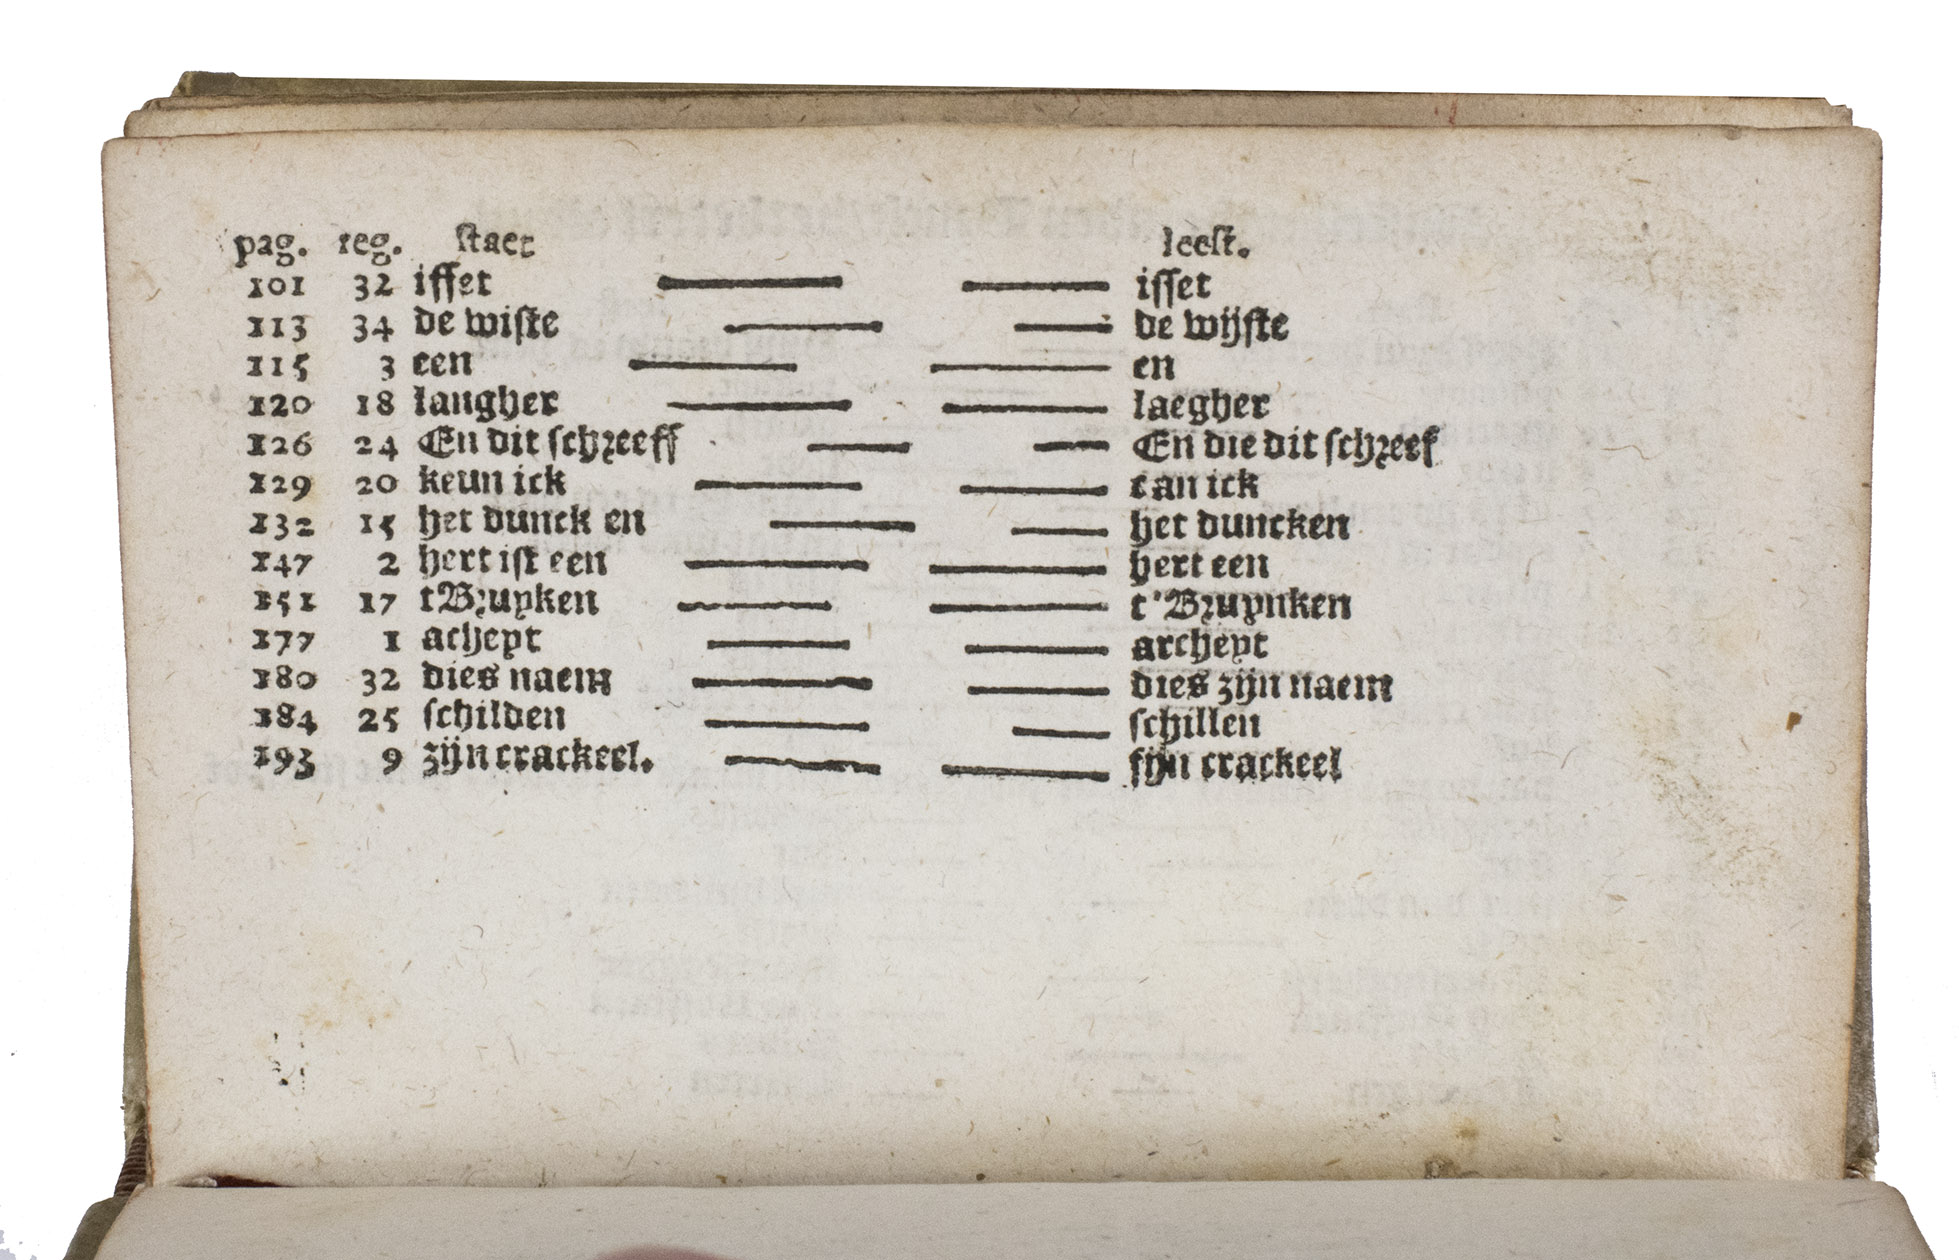 pag. reg. staet leest.
101 32 iffet isset
113 34 de wiste de wijste
115 3 een en
120 18 laugher laegher
126 24 En dit schreeff En die dit schreef
129 20 keun ick can ick
132 15 het dunck en het duncken
147 2 hert ist een hert een
151 17 tBruyken t'Bruynken
177 1 acheyt archeyt
180 32 dies naem dies zijn naem
184 25 schilden schillen
193 9 zijn crackeel. sijn crackeel